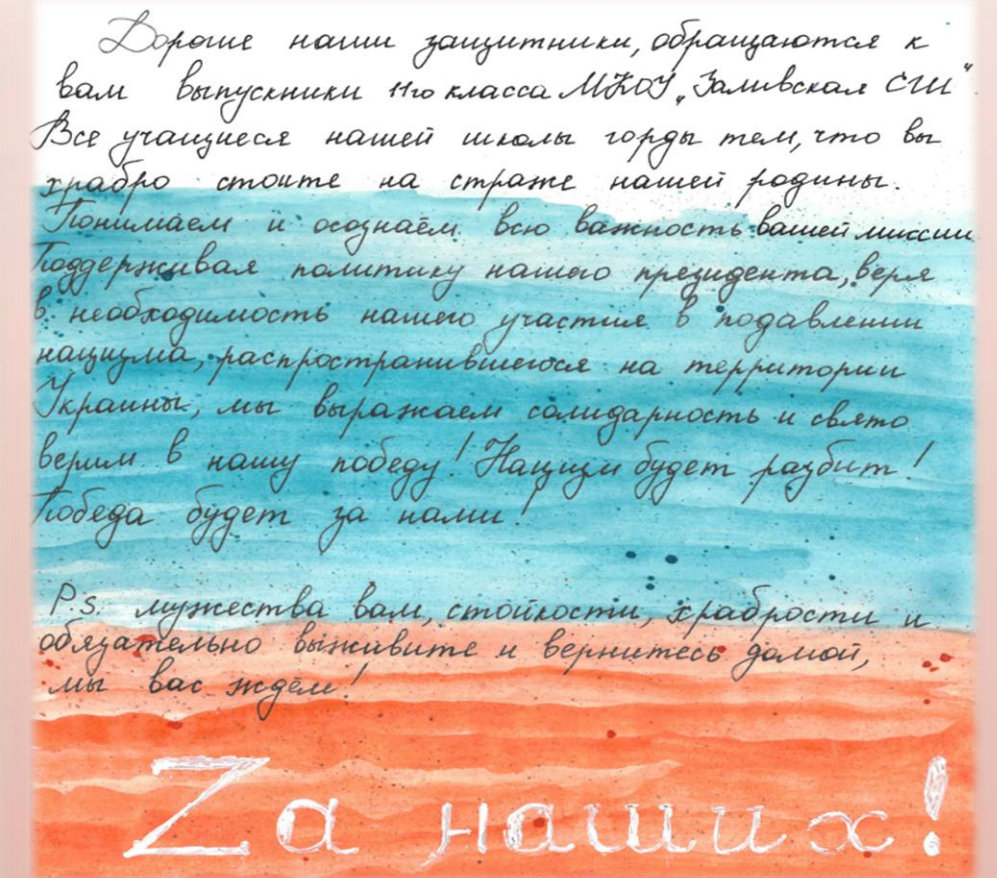 Дорогие наши защитники, обращаются к
вам выпускники 11го класса МКОУ „Заливская СШ"
Все учащиеся нашей школы горды тем, что вы
храбро стоите на страже нашей родины.
Понимаем и осознаём всю важность вашей миссии
Поддерживая политику нашего президента, веря
в необходимость нашего участия в подавлении
нацизма, распространившегося на территории
Украины, мы выражаем солидарность и свято
верим в нашу победу! Нацизм будет разбит!
Победа будет за нами!
P.s. мужества вам, стойкости, храбрости и
обязательно выживите и вернитесь домой,
мы вас ждём!
Zа наших!